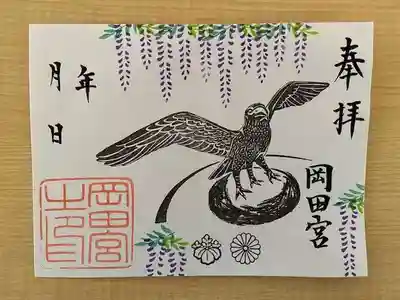 奉拝
岡田宮
年
月日
岡田宮